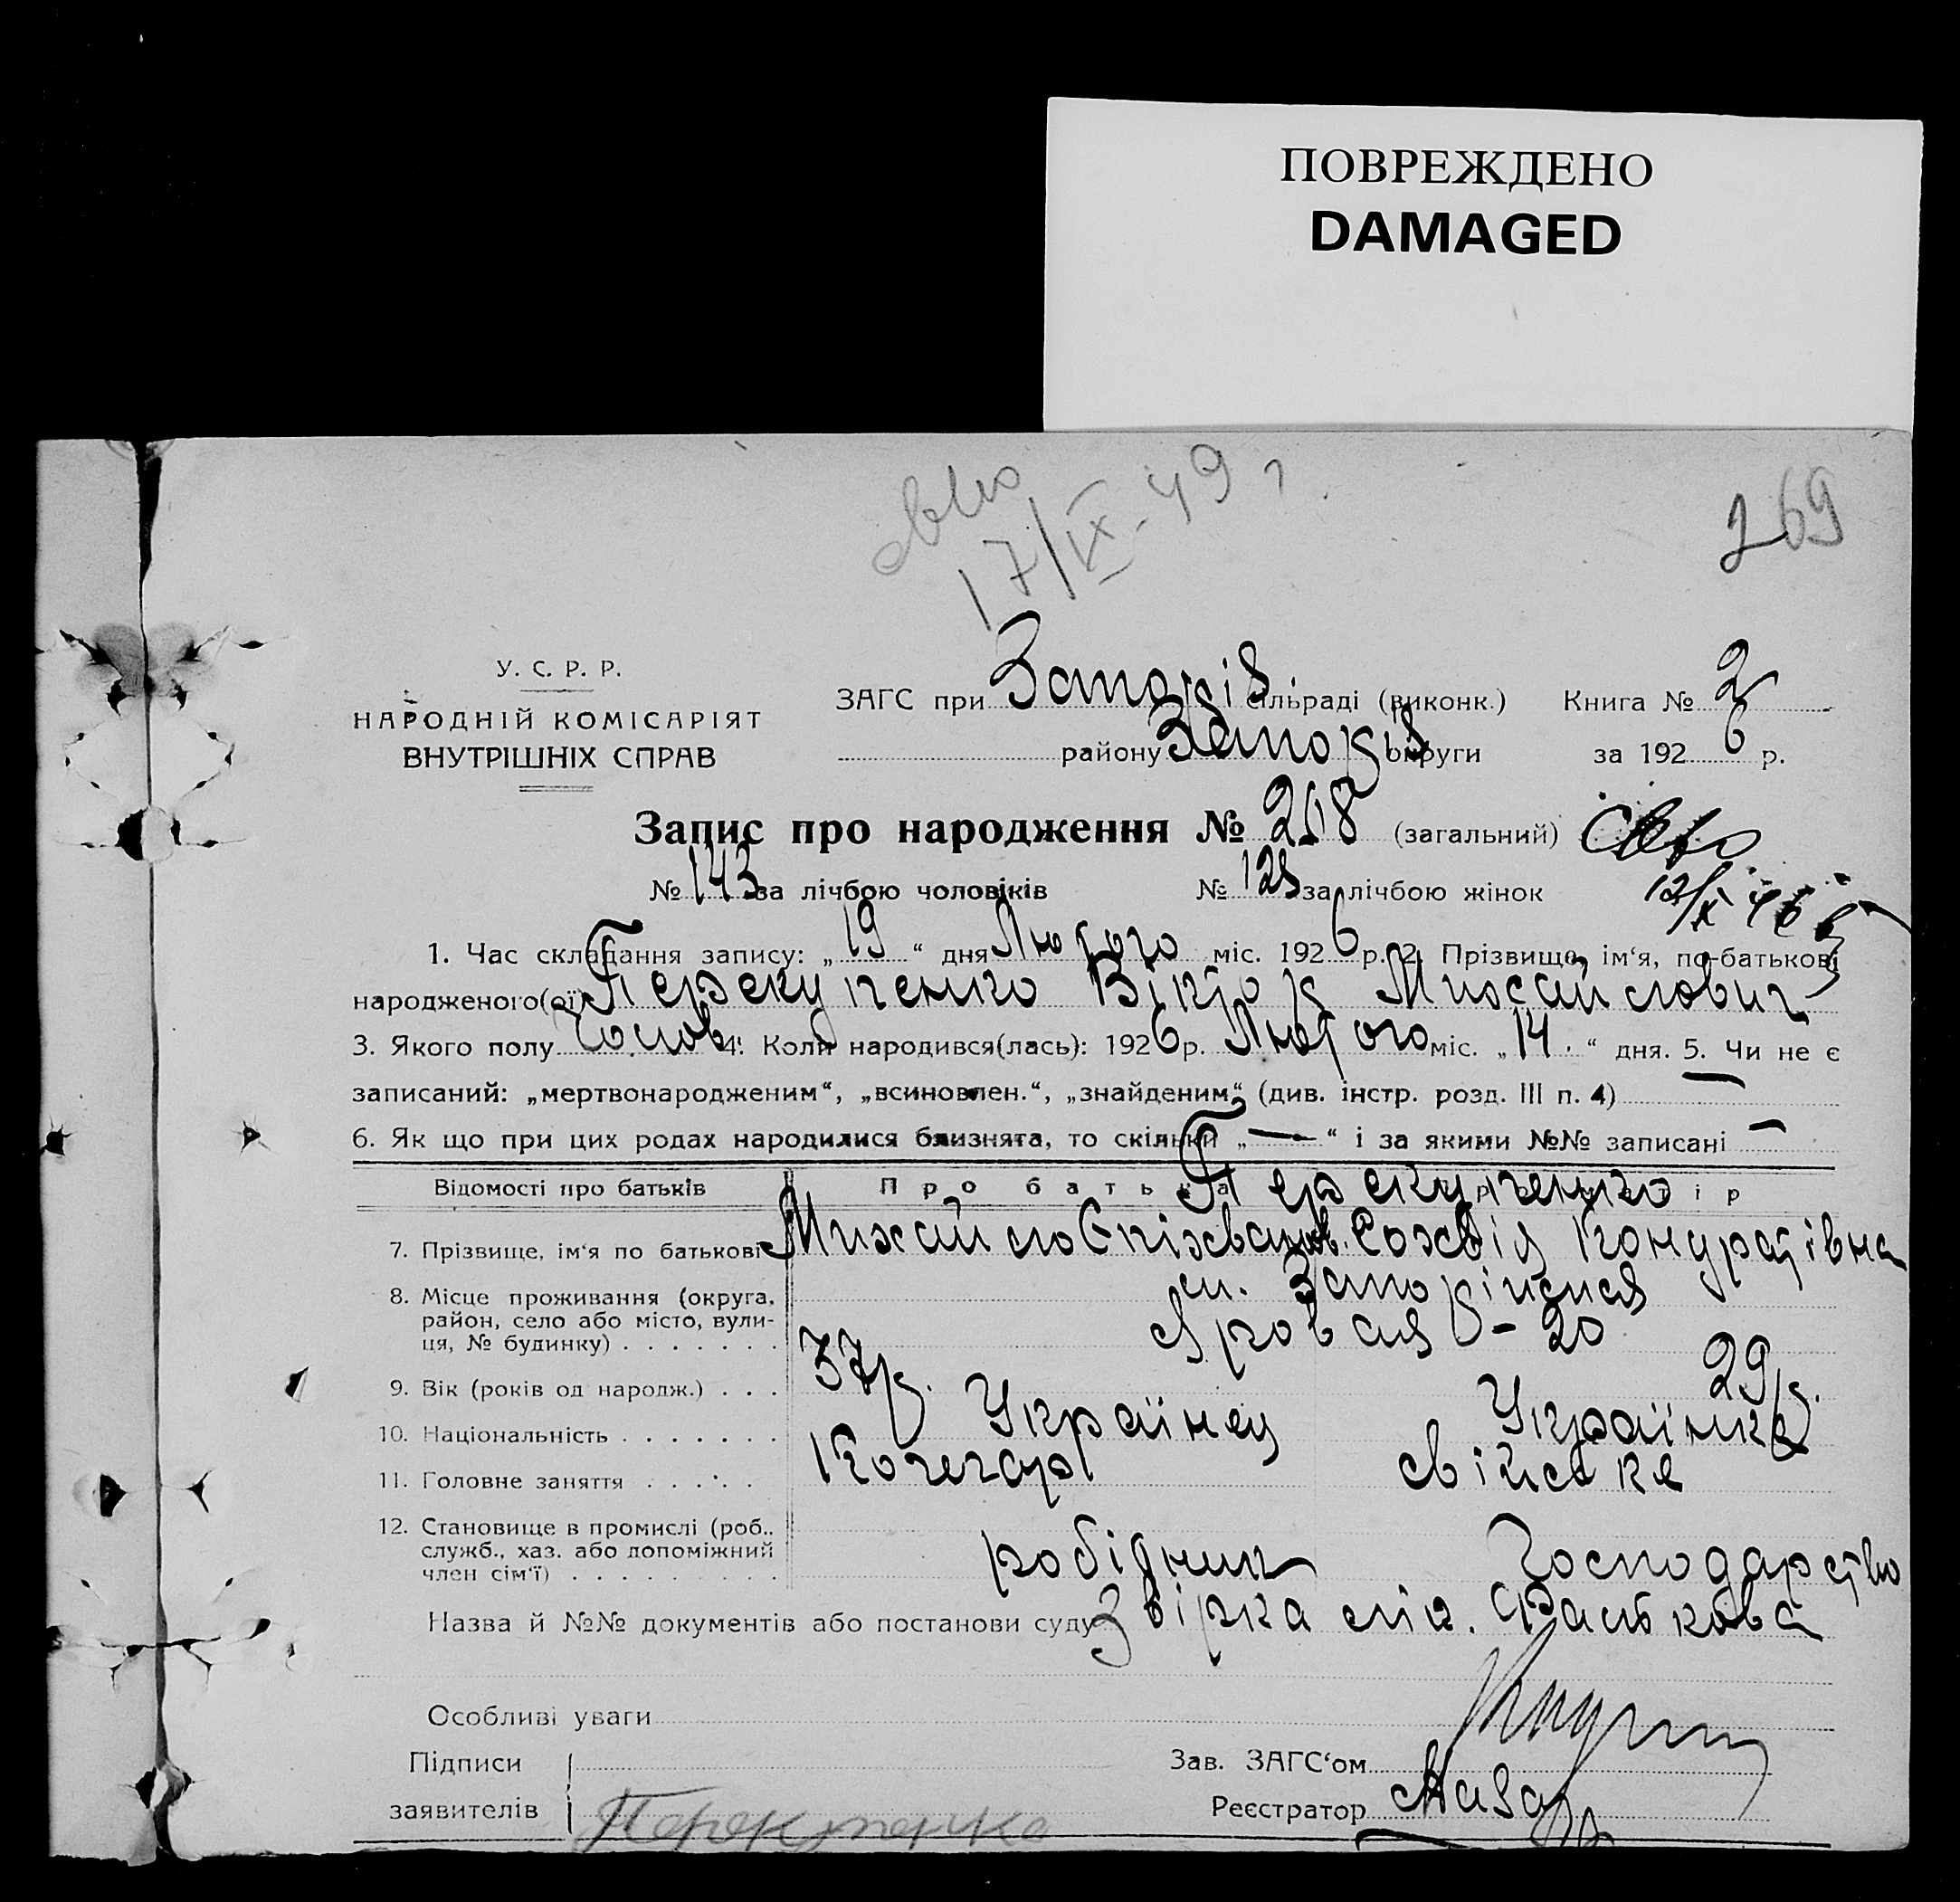 ПОВРЕЖДЕНО
DAMAGED
17/IX-49 г.
269
У. С. Р. Р.
НАРОДНІЙ КОМІСАРІЯТ
ВНУТРІШНІХ СПРАВ
ЗАГС при Запоріз сільраді (виконк.) Книга № 2
району Запоріз округи за 1926 р.
Запис про народження № 268 (загальний)
№ 143 за лічбою чоловіків № 125 за лічбою жінок
12/X 46
1. Час складання запису: „19“ дня Лютого міс. 1926 р. 2. Прізвище, ім‘я, по-батькові
народженого(ої) Перекупенко Віктор Михайлович
3. Якого полу Чолов. 4. Коли народився(лась): 1926 р. Лютого міс. „14.“ дня. 5. Чи не є
записаний: „мертвонародженим“, „всиновлен.“, „знайденим“ (див. інстр. розд. III п. 4) —
6. Як що при цих родах народилися близнята, то скільки „—“ і за якими №№ записані —
Відомості про батьків Про батька Перекупенко
7. Прізвище, ім‘я по батькові Михайло Софія Кондратівна
8. Місце проживання (округа, район, село або місто, вулиця, № будинку) м. Запоріжжя
20
9. Вік (років од народж.) 37 р. 29 р.
10. Національність Українец Українка
11. Головне заняття Кочегар свійське
12. Становище в промислі (роб., служб., хаз. або допоміжний член сім‘ї) робідник Господарство
Назва й №№ документів або постанови суду Звірка лік. Фалькова
Особливі уваги
Підписи Зав. ЗАГС‘ом
заявителів Перекупенко Реєстратор